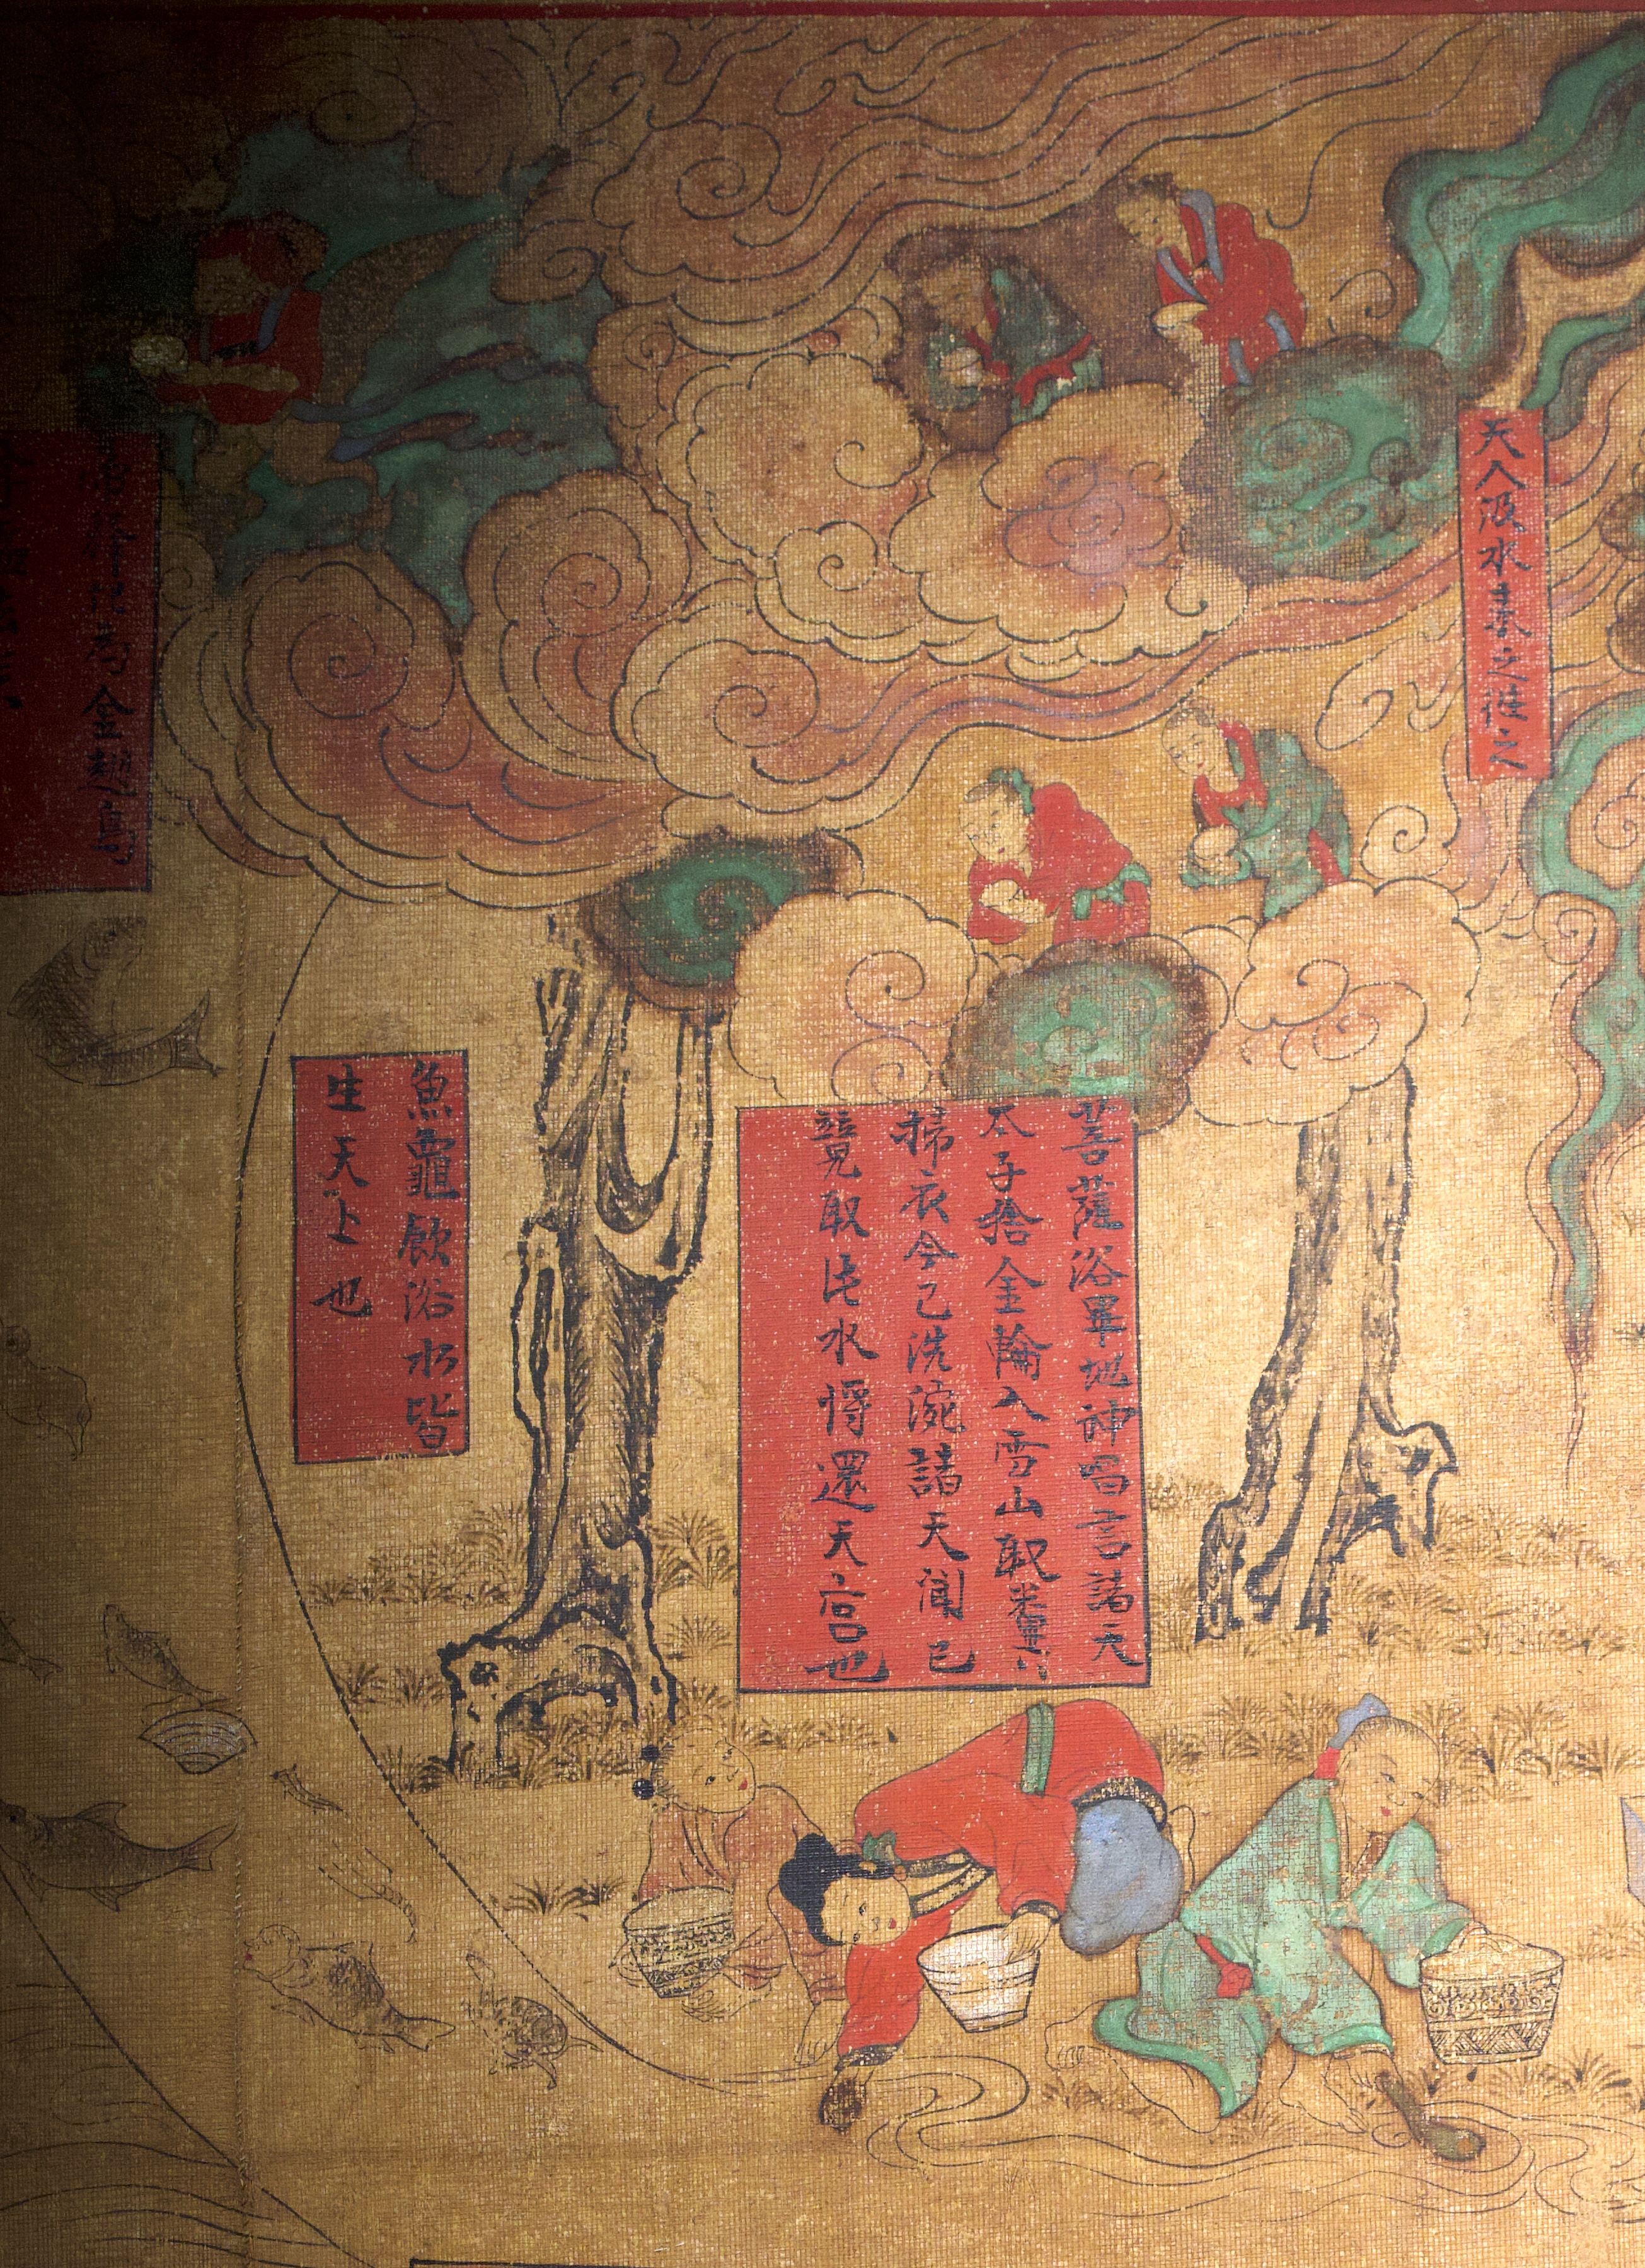 天人汲水来之往之
菩薩浴畢地神唱言諸天
太子捨金輪入雪山取糞
掃衣今已洗浣諸天聞已
競取此水將還天宮也
魚龜飲浴水皆
生天上也
為金翅鳥